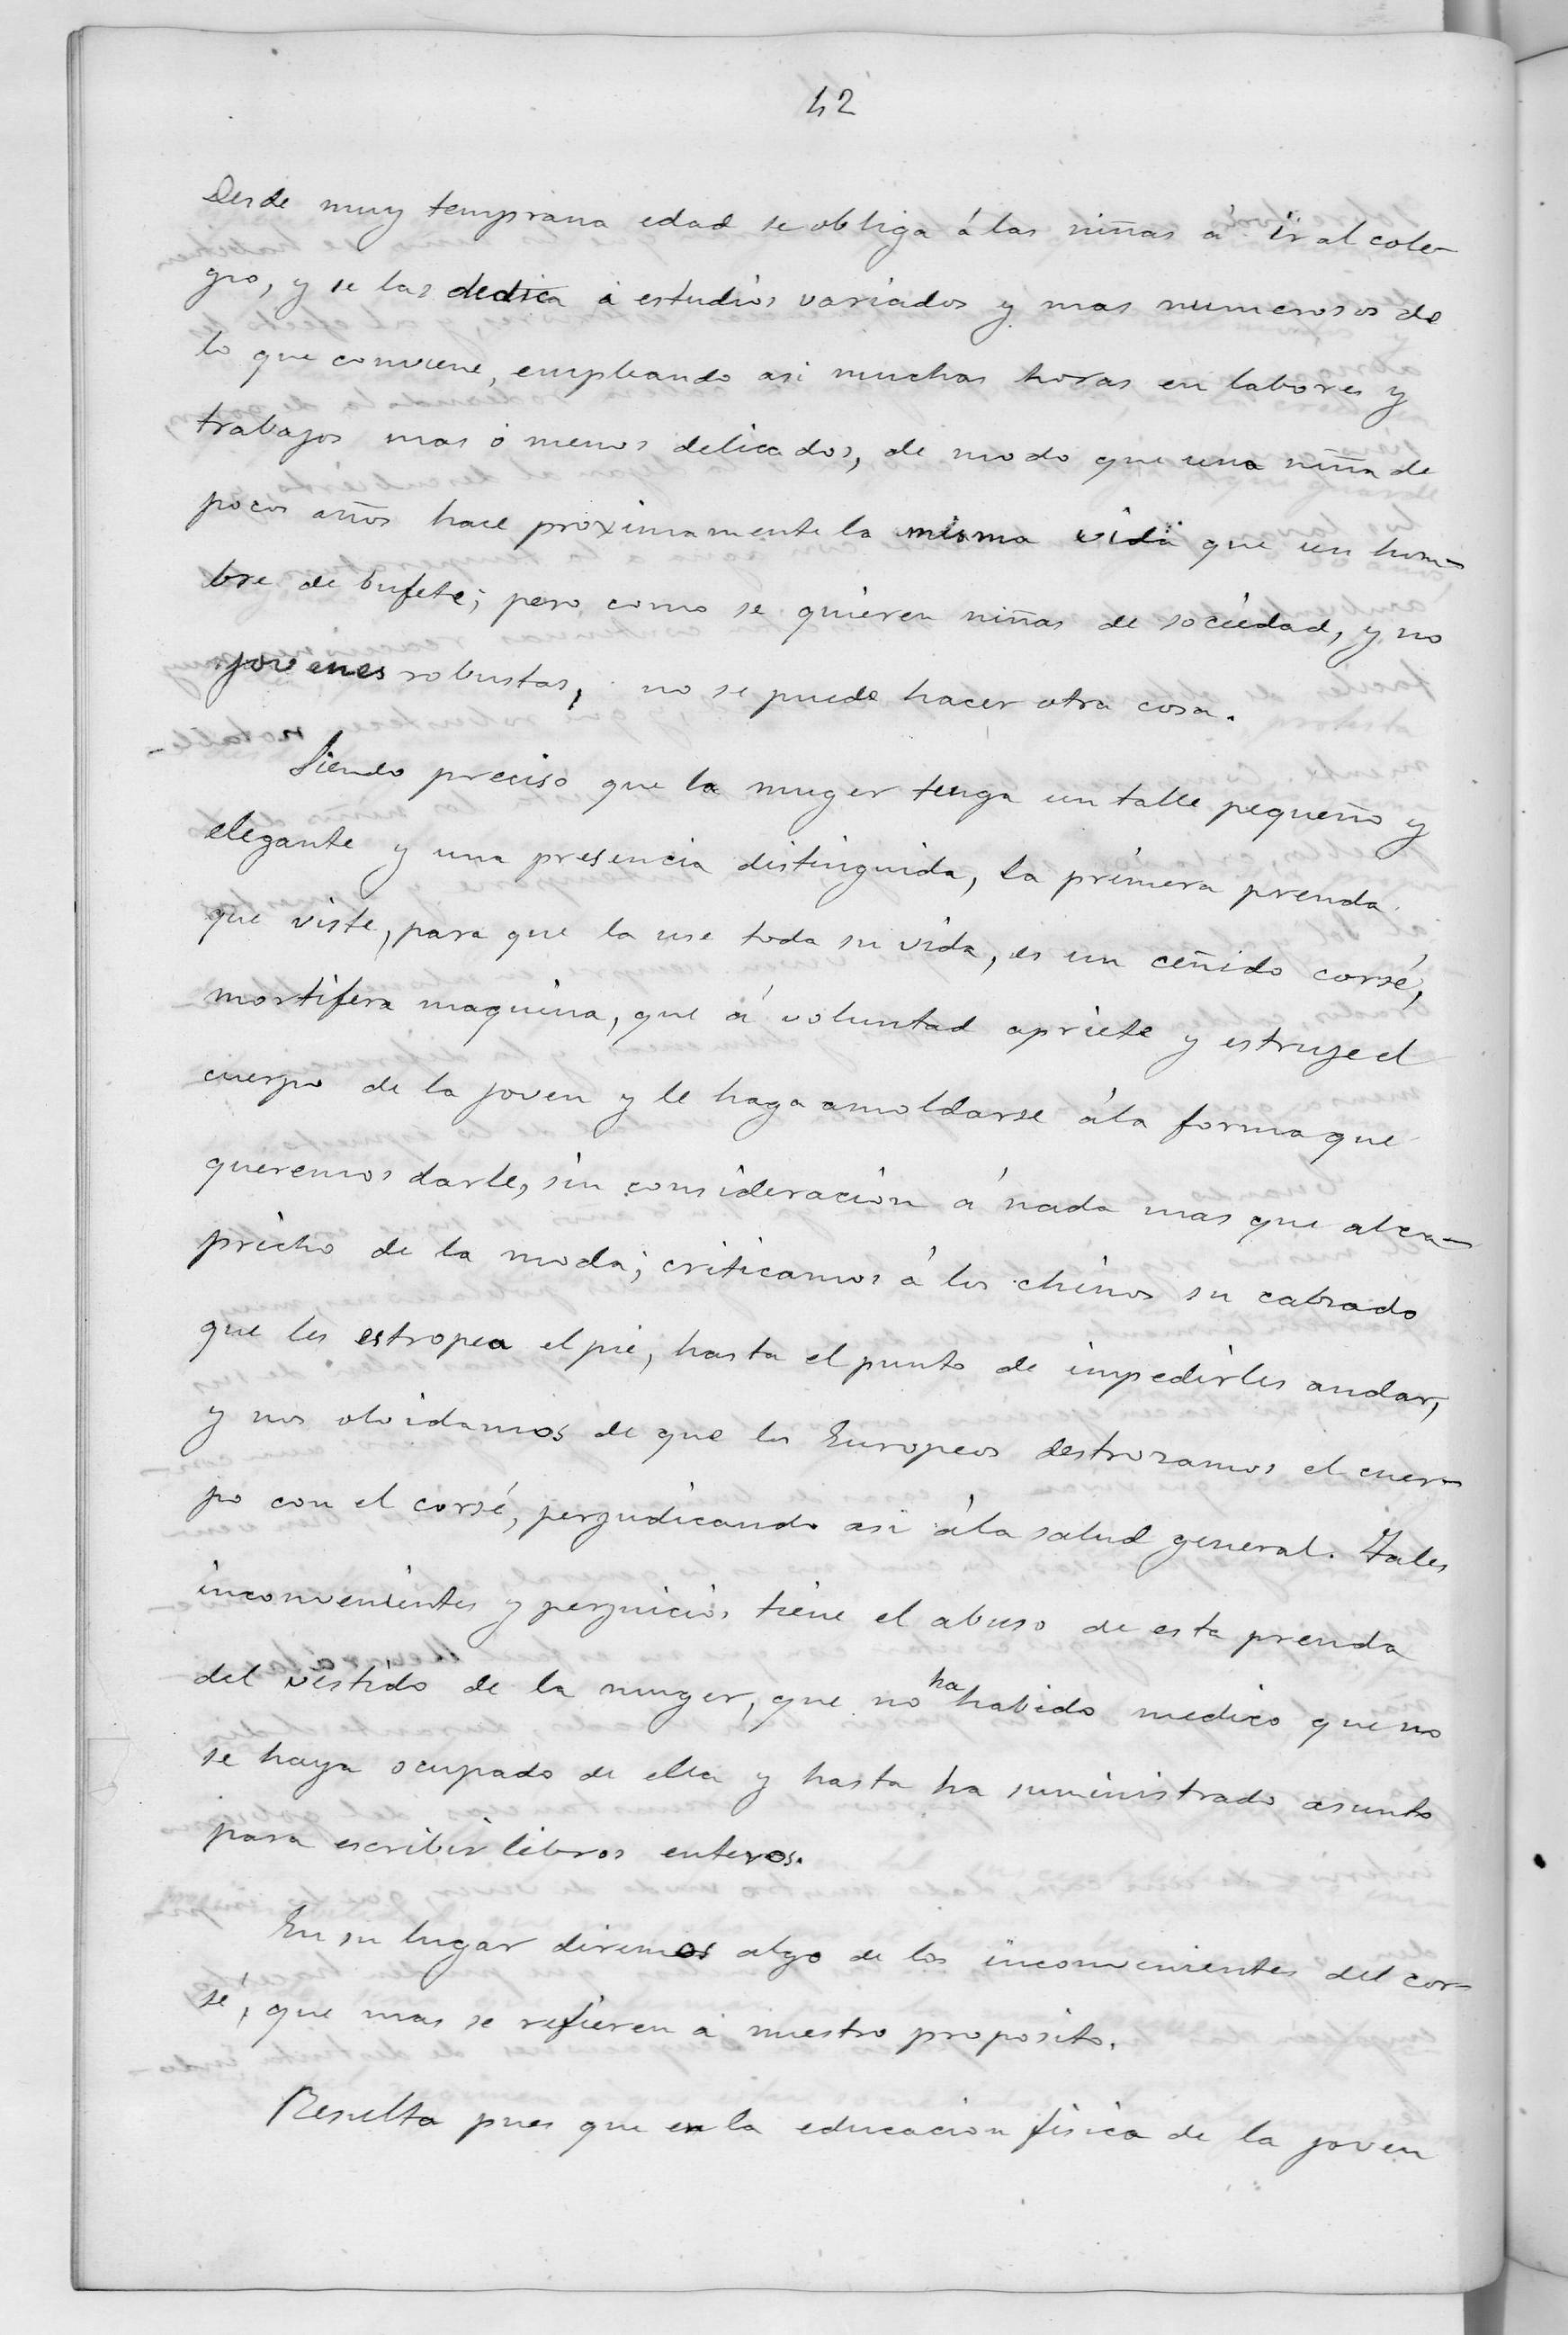 42
Desde muy temprana edad se obliga á las niñas á ir al cole-
gio, y se las dedica á estudios variados y mas numerosos de
lo que conviene, empleando asi muchas horas en labores y
trabajos mas ó menos delicados, de modo que una niña de
pocos años hace proximamente la misma vida que un hom-
bre de bufete; pero como se quieren niñas de sociedad, y no
jovenes robustas, no se puede hacer otra cosa.
Siendo preciso que la muger tenga un talle pequeño y
elegante y una presencia distinguida, la primera prenda
que viste, para que la use toda su vida, es un ceñido corsé,
mortifera maquina, que á voluntad apriete y estruje el
cuerpo de la joven y le haga amoldarse á la forma que
queremos darle, sin consideracion á nada mas que al ca-
pricho de la moda; criticamos á los chinos su calzado
que les estropea el pie, hasta el punto de impedirles andar,
y nos olvidamos de que los Europeos destrozamos el cuer-
po con el corsé, perjudicando asi á la salud general. Tales
inconvenientes y perjuicios tiene el abuso de esta prenda
del vestido de la muger, que no ha habido medico que no
se haya ocupado de ella y hasta ha suministrado asunto
para escribir libros enteros.
En su lugar diremos algo de los inconvenientes del cor-
sé, que mas se refieren á nuestro proposito.
Resulta pues que en la educacion fisica de la joven